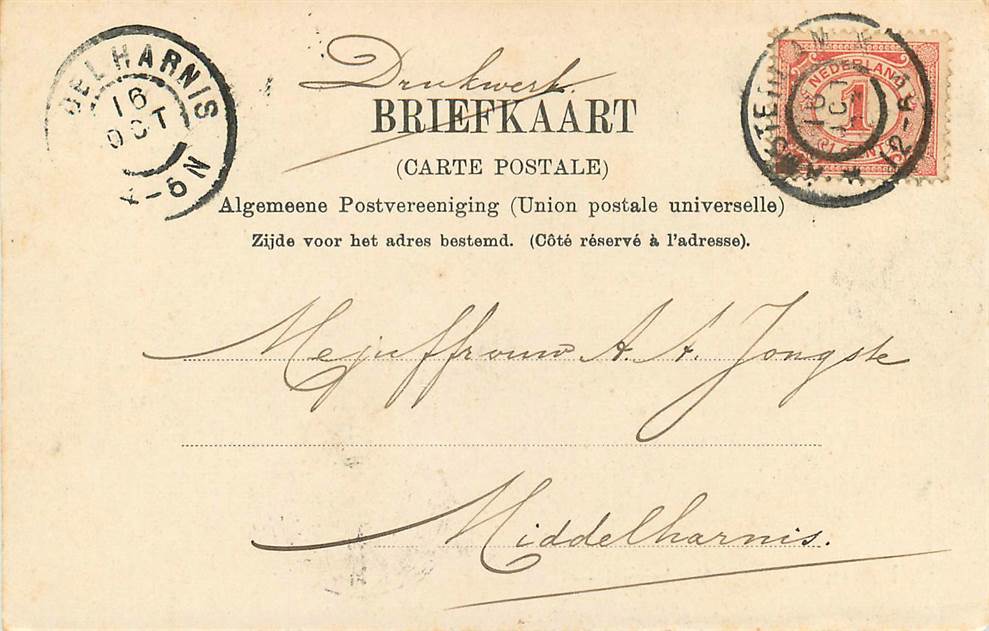 DELHARNIS
16
OCT
4-5N
Drukwerk.
BRIEFKAART
(CARTE POSTALE)
Algemeene Postvereeniging (Union postale universelle)
Zijde voor het adres bestemd. (Côté réservé à l'adresse).
NEDERLAND
1
CENT
16
OCT
Mejuffrouw A. A. Jongste
Middelharnis.